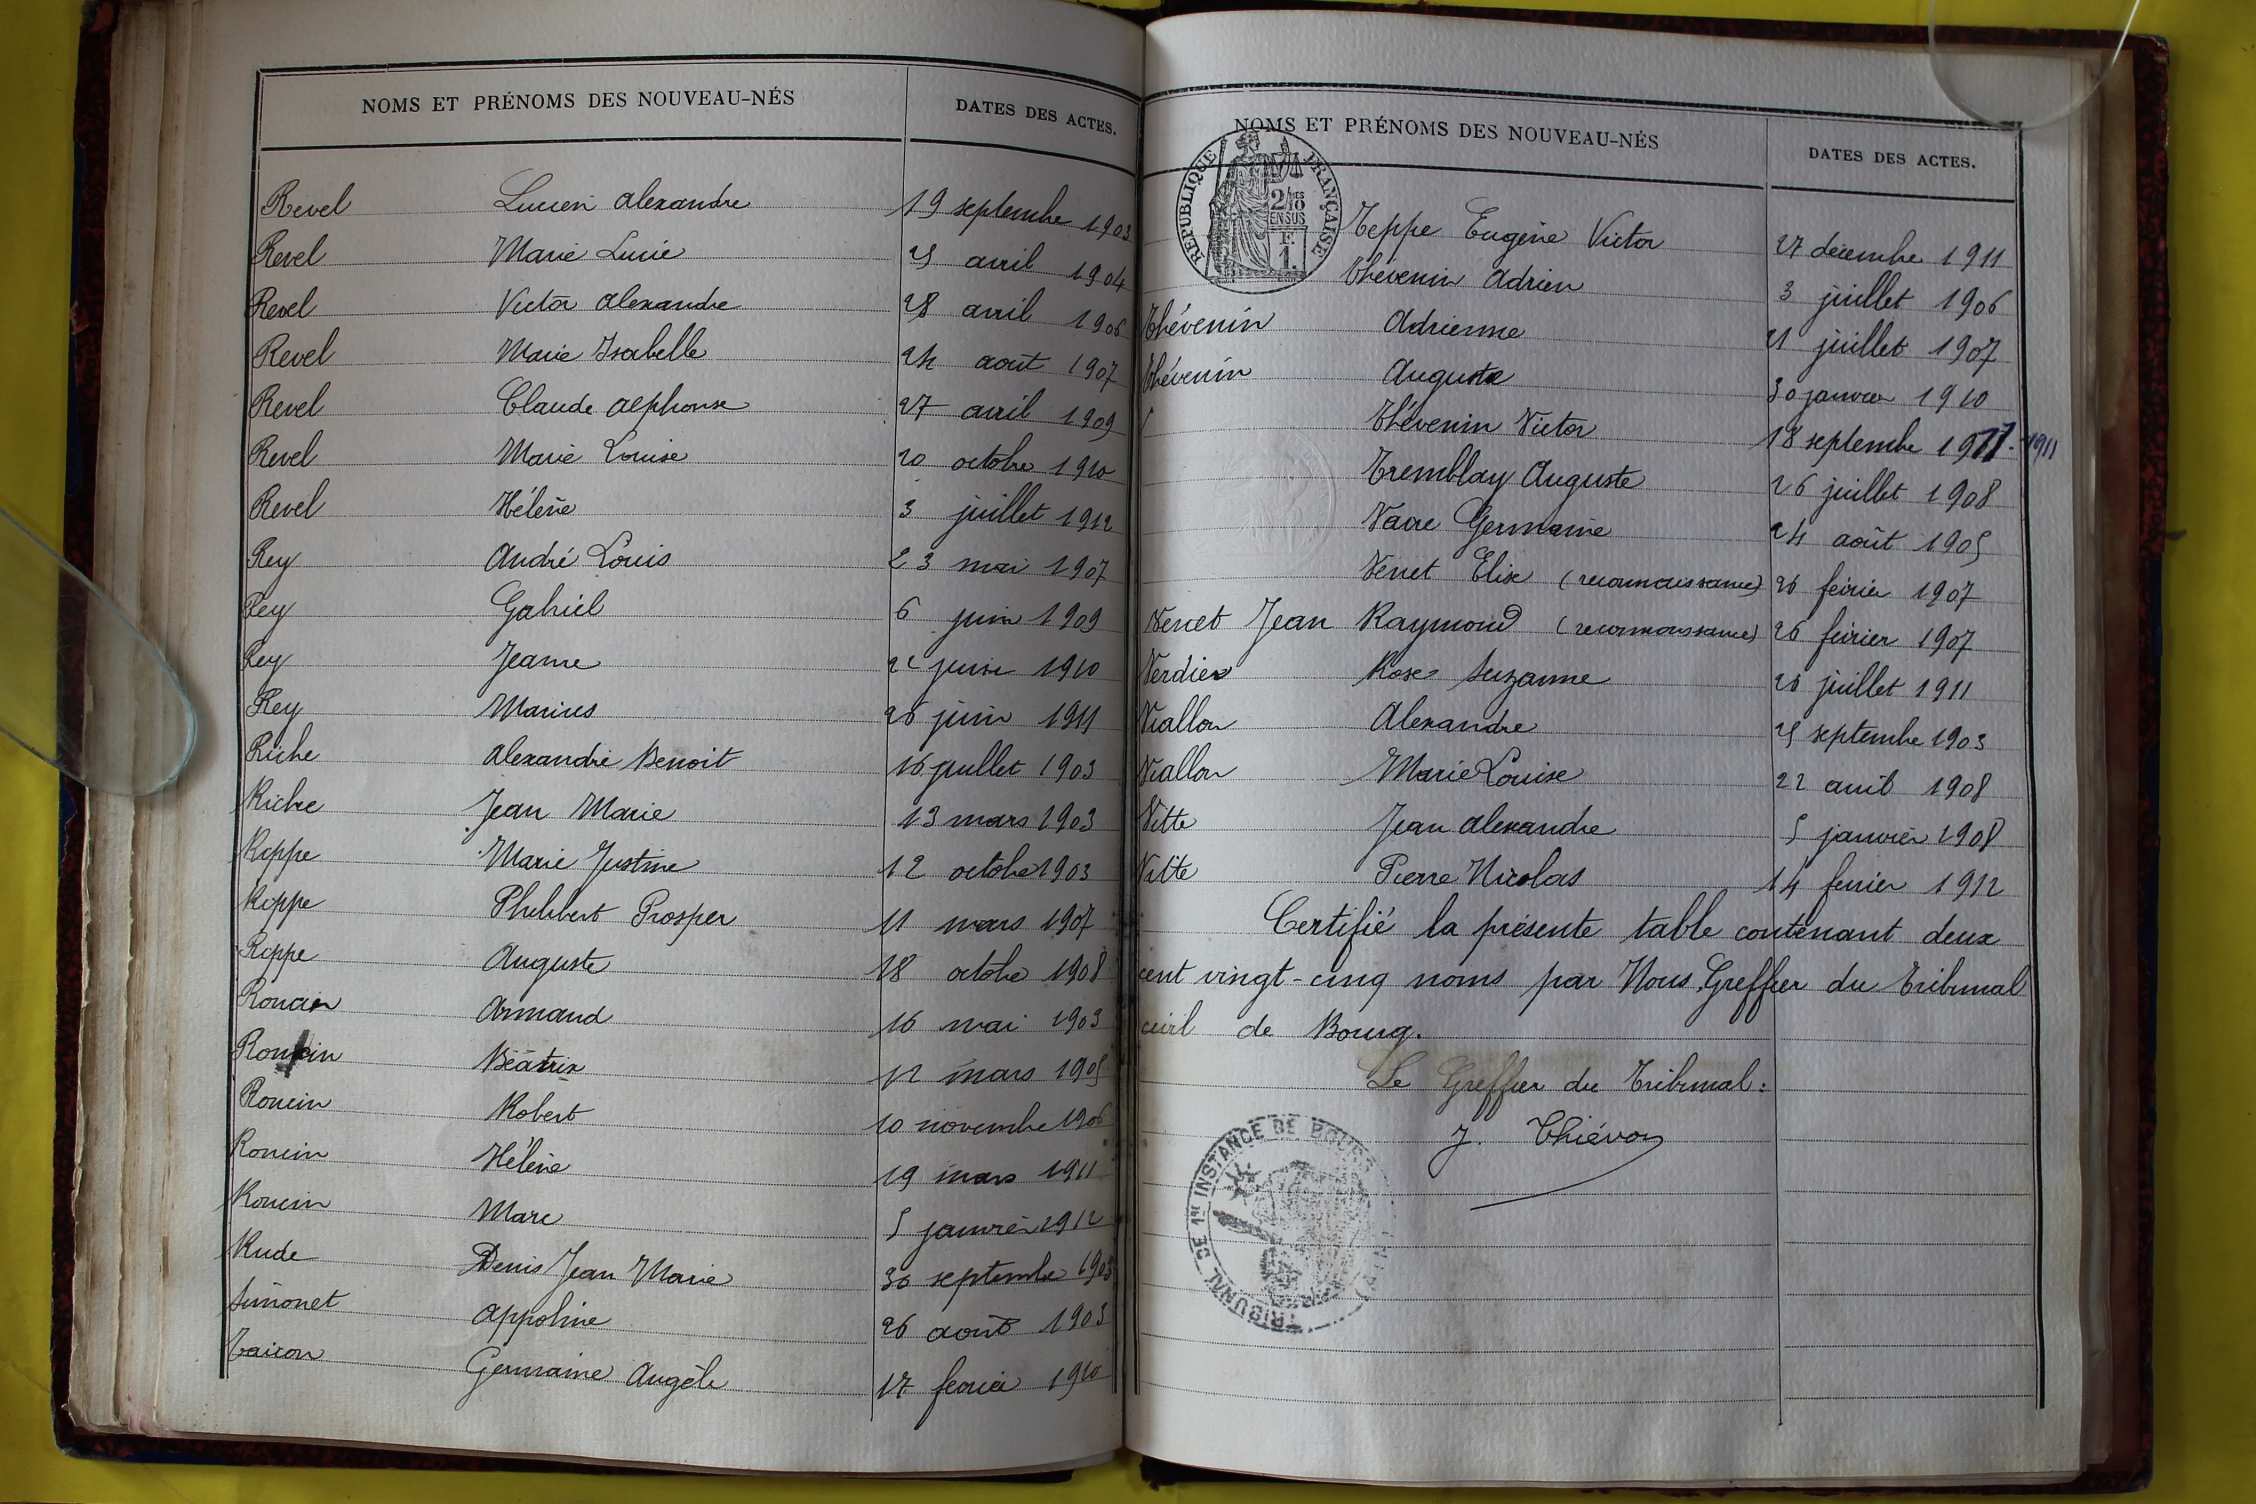 NOMS ET PRÉNOMS DES NOUVEAU-NÉS DATES DES ACTES.
Revel Lucien Alexandre 19 septembre 1903
Revel Marie Lucie 25 avril 1904
Revel Victor Alexandre 28 avril 1906
Revel Marie Isabelle 24 août 1907
Revel Claude Alphonse 27 avril 1909
Revel Marie Louise 20 octobre 1910
Revel Hélène 3 juillet 1912
Rey André Louis 23 mai 1907
Rey Gabriel 6 juin 1909
Rey Jeanne juin 1910
Rey Marius 26 juin 1911
Riche Alexandre Benoit 16 juillet 1903
Riche Jean Marie 13 mars 1903
Rippe Marie Justine 12 octobre 1903
Rippe Philibert Prosper 11 mars 1907
Rippe Auguste 18 octobre 1908
Roncin Armand 16 mai 1903
Roncin Béatrix 12 mars 1905
Roncin Robert 10 novembre 1906
Roncin Hélène 19 mars 1911
Roncin Marc 5 janvier 1912
Rude Denis Jean Marie 30 septembre 1903
Simonet Appoline 26 août 1903
Taicon Germaine Angèle 17 fevrier 1910
NOMS ET PRÉNOMS DES NOUVEAU-NÉS DATES DES ACTES.
REPUBLIQUE FRANÇAISE
2/10ES
EN SUS
F.
1.
Teppe Eugène Victor 27 décembre 1911
Thévenin Adrien 3 juillet 1906
Thévenin Adrienne 21 juillet 1907
Thévenin Auguste 30 janvier 1910
Thévenin Victor 18 septembre 1911. 1911
Tremblay Auguste 26 juillet 1908
Vacre Germaine 24 août 1905
Venet Elise (reconnaissance) 26 février 1907
Venet Jean Raymond (reconnaissance) 26 février 1907
Verdier Rose Suzanne 28 juillet 1911
Viallon Alexandre 25 septembre 1903
Viallon Marie Louise 22 avril 1908
Vitte Jean Alexandre 5 janvier 1908
Vitte Pierre Nicolas 14 fevrier 1912
Certifié la présente table contenant deux
cent vingt-cinq noms par Nous Greffier du Tribunal
civil de Bourg.
Le Greffier du Tribunal:
J. Thiévon
TRIBUNAL DE 1RE INSTANCE DE BOURG